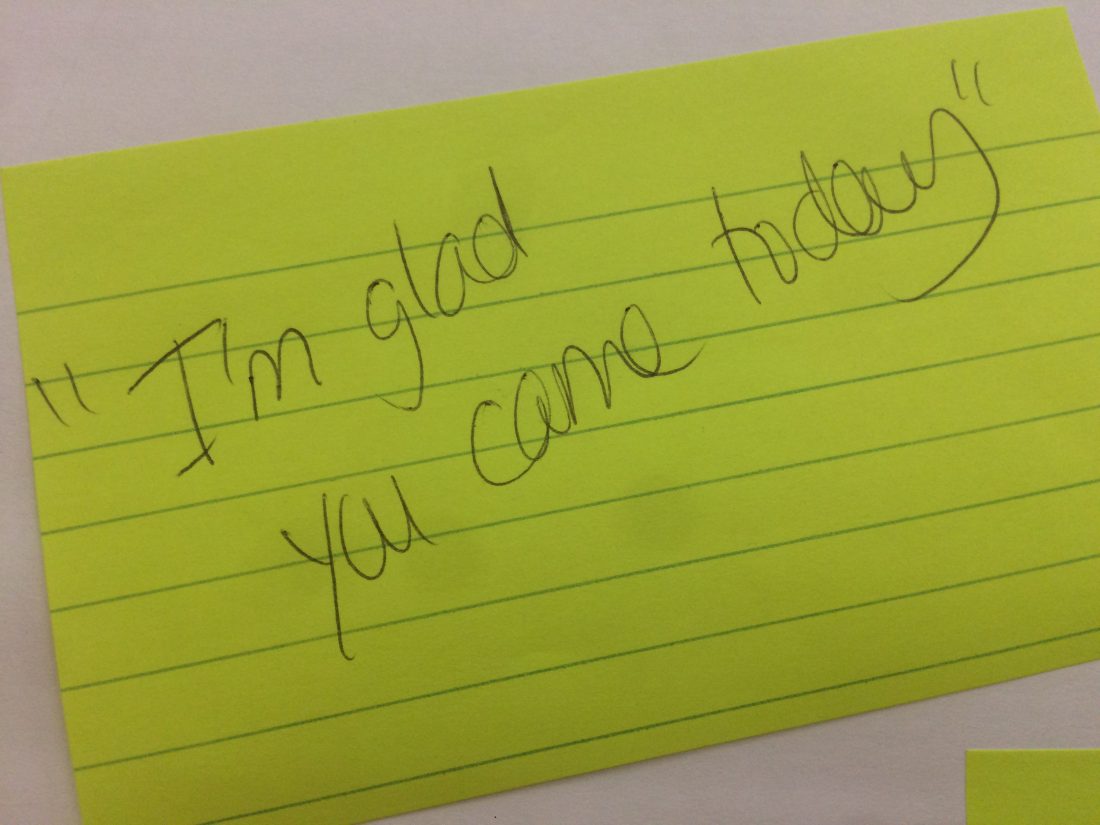 "I'm glad
you came today"